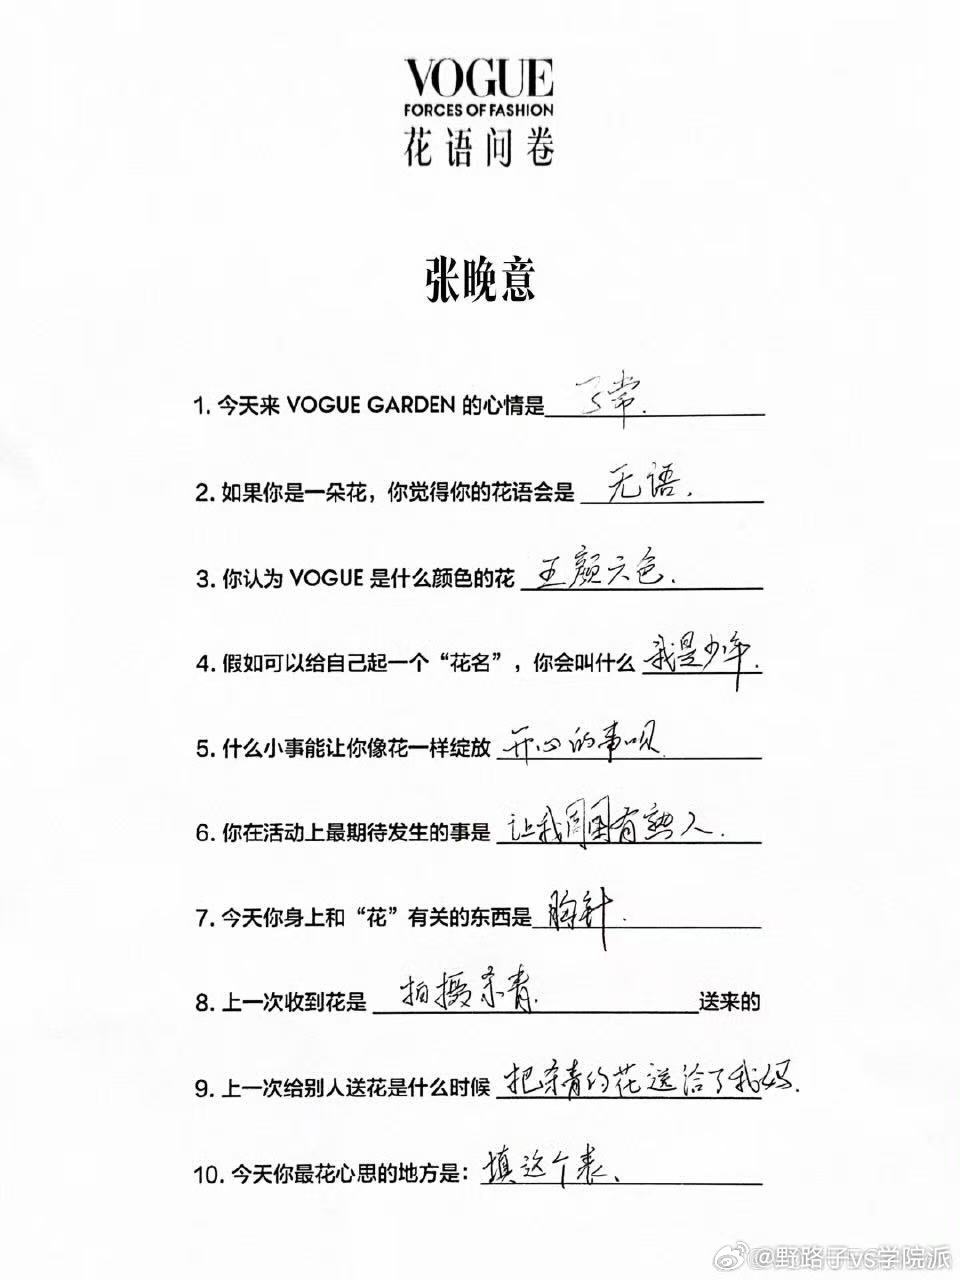 VOGUE
FORCES OF FASHION
花语问卷
张晚意
1. 今天来 VOGUE GARDEN 的心情是 常.
2. 如果你是一朵花，你觉得你的花语会是 无语.
3. 你认为 VOGUE 是什么颜色的花 五颜六色.
4. 假如可以给自己起一个“花名”，你会叫什么 我是少年.
5. 什么小事能让你像花一样绽放 开心的事呗
6. 你在活动上最期待发生的事是 让我周围有熟人.
7. 今天你身上和“花”有关的东西是 胸针.
8. 上一次收到花是 拍摄杀青. 送来的
9. 上一次给别人送花是什么时候 把杀青的花送给了我妈.
10. 今天你最花心思的地方是： 填这个表、
@野路子vs学院派